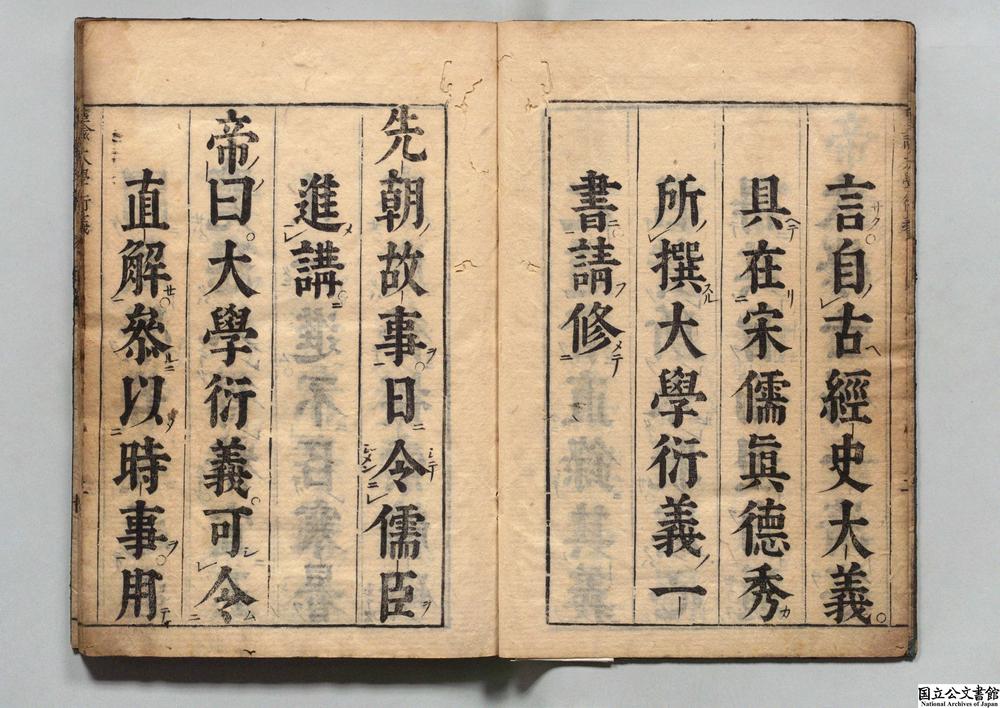 言自古經史大義
具在宋儒眞德秀
所撰大學衍義一
書請修
先朝故事日令儒臣
進講
帝曰大學衍義可令
直解參以時事用
国立公文書館
National Archives of Japan